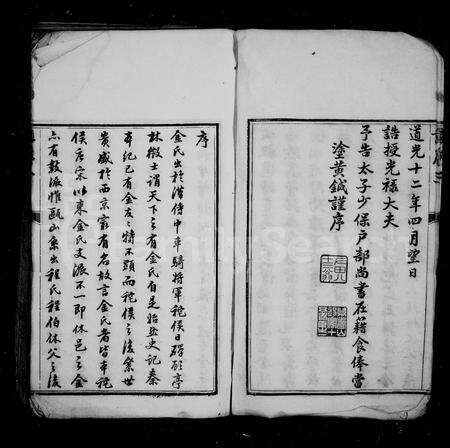 道光十二年四月望日
誥授光祿大夫
予告太子少保戶部尚書在籍食俸當
塗黃鉞謹序
序
金氏出於漢侍中車騎將軍秺侯日磾顧亭
林徵士謂天下之有金氏自是始然史記秦
本紀已有金友之特不顯而秺侯之後累世
貴盛於西京最有名故言金氏者皆本秺
侯唐宋以來金氏支派不一即休邑之金
亦有數派惟甌山系出程氏程伯休父之後